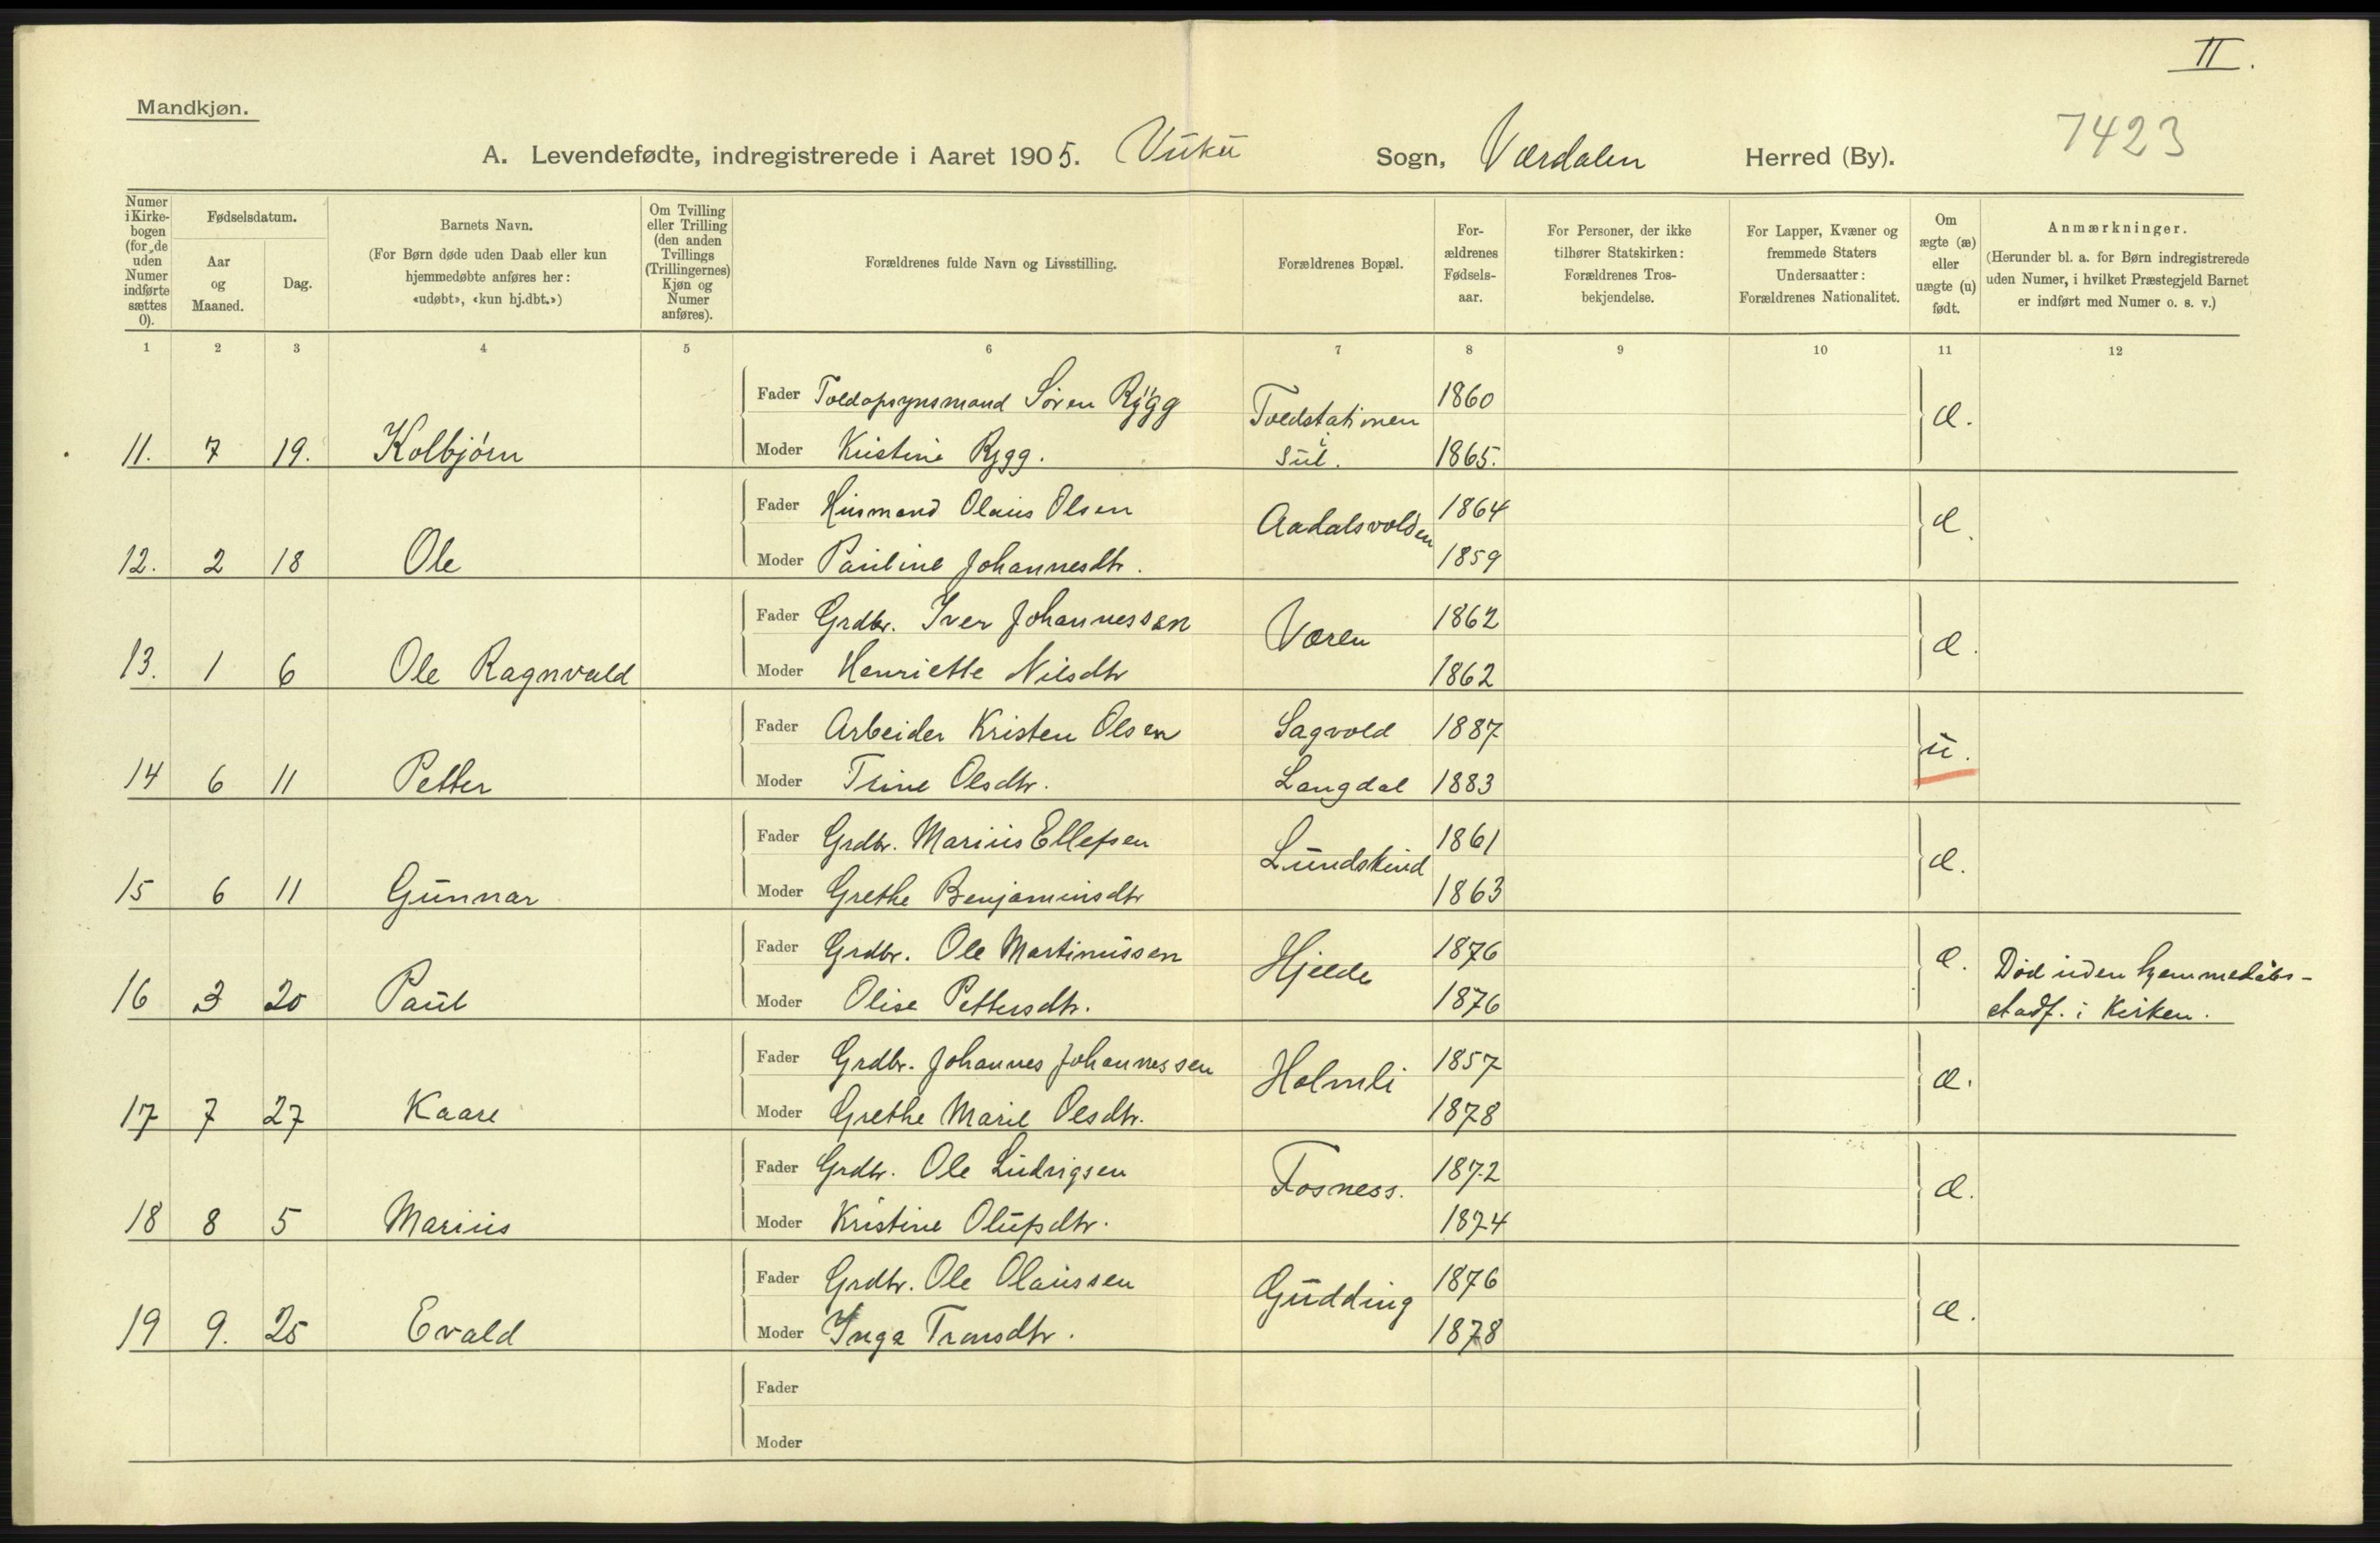 II.
Mandkjøn.
7423
A. Levendefødte, indregistrerede i Aaret 1905. Vuku Sogn, Værdalen Herred (By).
Numer i Kirke-bogen (for de uden Numer indførte sættes 0).
Fødselsdatum.
Aar og Maaned.
Dag.
Barnets Navn.
(For Børn døde uden Daab eller kun hjemmedøbte anføres her: «udøbt», «kun hj.dbt.»)
Om Tvilling eller Trilling (den anden Tvillings (Trillingernes) Kjøn og Numer anføres).
Forældrenes fulde Navn og Livsstilling.
Forældrenes Bopæl.
For-ældrenes Fødsels-aar.
For Personer, der ikke tilhører Statskirken: Forældrenes Tros-bekjendelse.
For Lapper, Kvæner og fremmede Staters Undersaatter: Forældrenes Nationalitet.
Om ægte (æ) eller uægte (u) født.
Anmærkninger.
(Herunder bl. a. for Børn indregistrerede uden Numer, i hvilket Præstegjeld Barnet er indført med Numer o. s. v.)
1 2 3 4 5 6 7 8 9 10 11 12
Fader Toldopsynsmand Sören Rygg Toldstationen 1860 æ.
11. 7 19. Kolbjörn Moder Kristine Rygg. i Sul. 1865.
Fader Husmand Olaus Olsen Aadalsvolden 1864 æ.
12. 2 18 Ole Moder Pauline Johannesdtr. 1859
Fader Grdbr. Iver Johannessen Væren 1862 æ.
13. 1 6 Ole Ragnvald Moder Henriette Nilsdtr 1862
Fader Arbeider Kristen Olsen Sagvold 1887 u.
14 6 11 Petter Moder Trine Olsdtr. Langdal 1883
Fader Grdbr. Marius Ellefsen Lundskind 1861 æ.
15 6 11 Gunnar Moder Grethe Benjaminsdtr 1863
Fader Grdbr. Ole Martinussen Hjelde 1876 æ. Död uden hjemmedåbs-
16 3 20 Paul Moder Olise Pettersdtr. 1876 stadf. i Kirken.
Fader Grdbr. Johannes Johannessen Holmli 1857 æ.
17 7 27 Kaare Moder Grethe Marie Olsdtr. 1878
Fader Grdbr. Ole Ludvigsen Fosness. 1872 æ.
18 8 5 Marius Moder Kristine Olufsdtr. 1874
Fader Grdbr. Ole Olaussen Gudding 1876 æ.
19 9. 25 Evald Moder Inga Tronsdtr. 1878
Fader
Moder